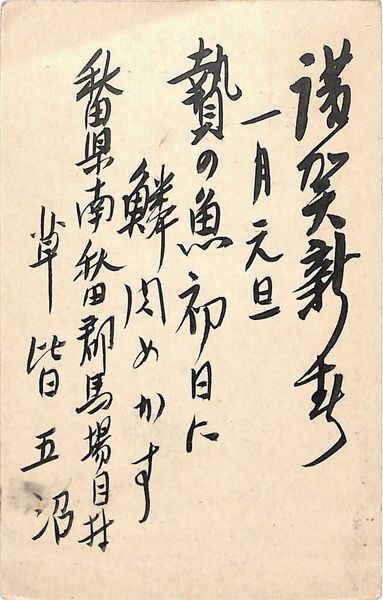 謹賀新春
一月元旦
贄の魚初日に
鱗閃めかす
秋田県南秋田郡馬場目村
草皆五沼